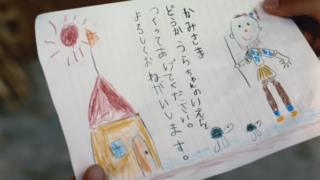 かみさま
どうか、うらちゃんのいえを
つくってあげてください。
よろしくおねがいします。